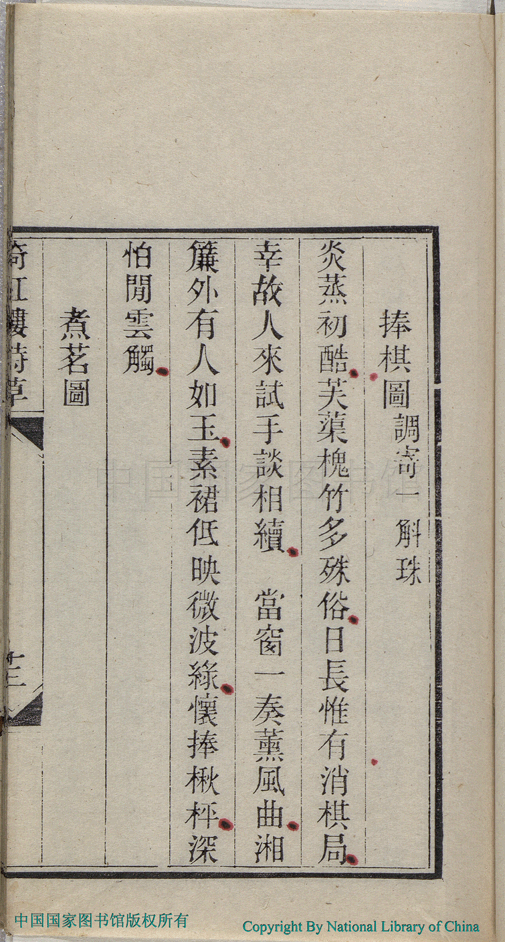 捧棋圖 調寄一斛珠
炎蒸初酷芙蕖槐竹多殊俗日長惟有消棋局
幸故人來試手談相續 當窗一奏薰風曲湘
簾外有人如玉素裙低映微波綠懷捧楸枰深
怕閒雲觸
煮茗圖
倚紅樓詩草
中国国家图书馆
中国国家图书馆版权所有
Copyright By National Library of China